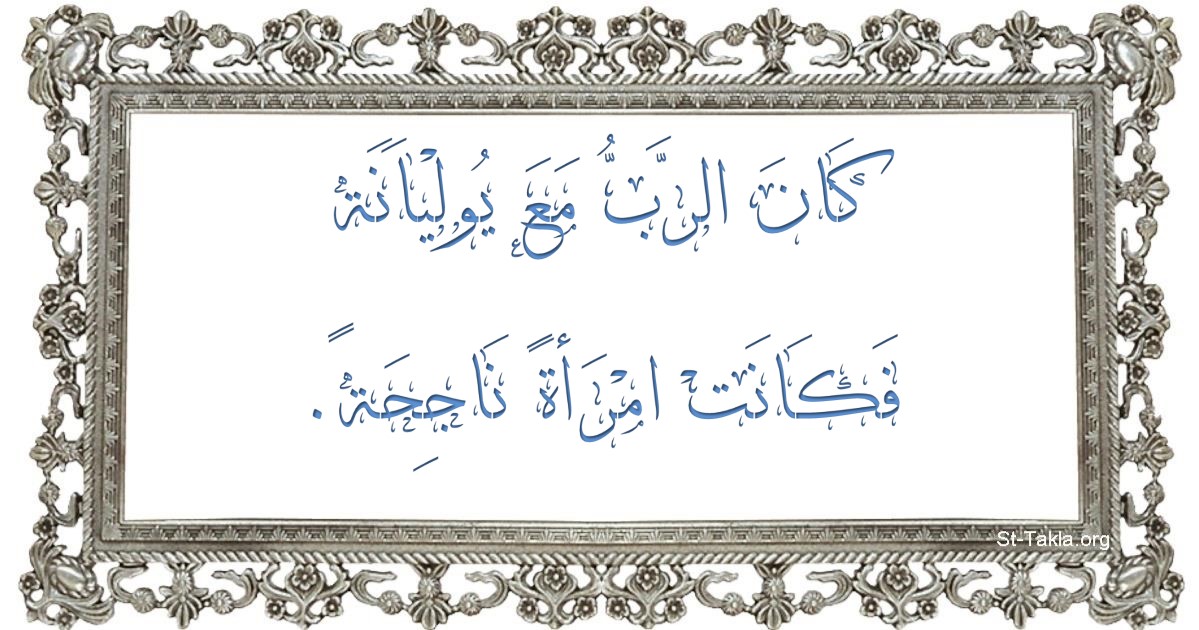 كَانَ الرَّبُّ مَعَ يُولْيَانَةْ
فَكَانَتْ امْرَأةً نَاجِحَةً.
St-Takla.org